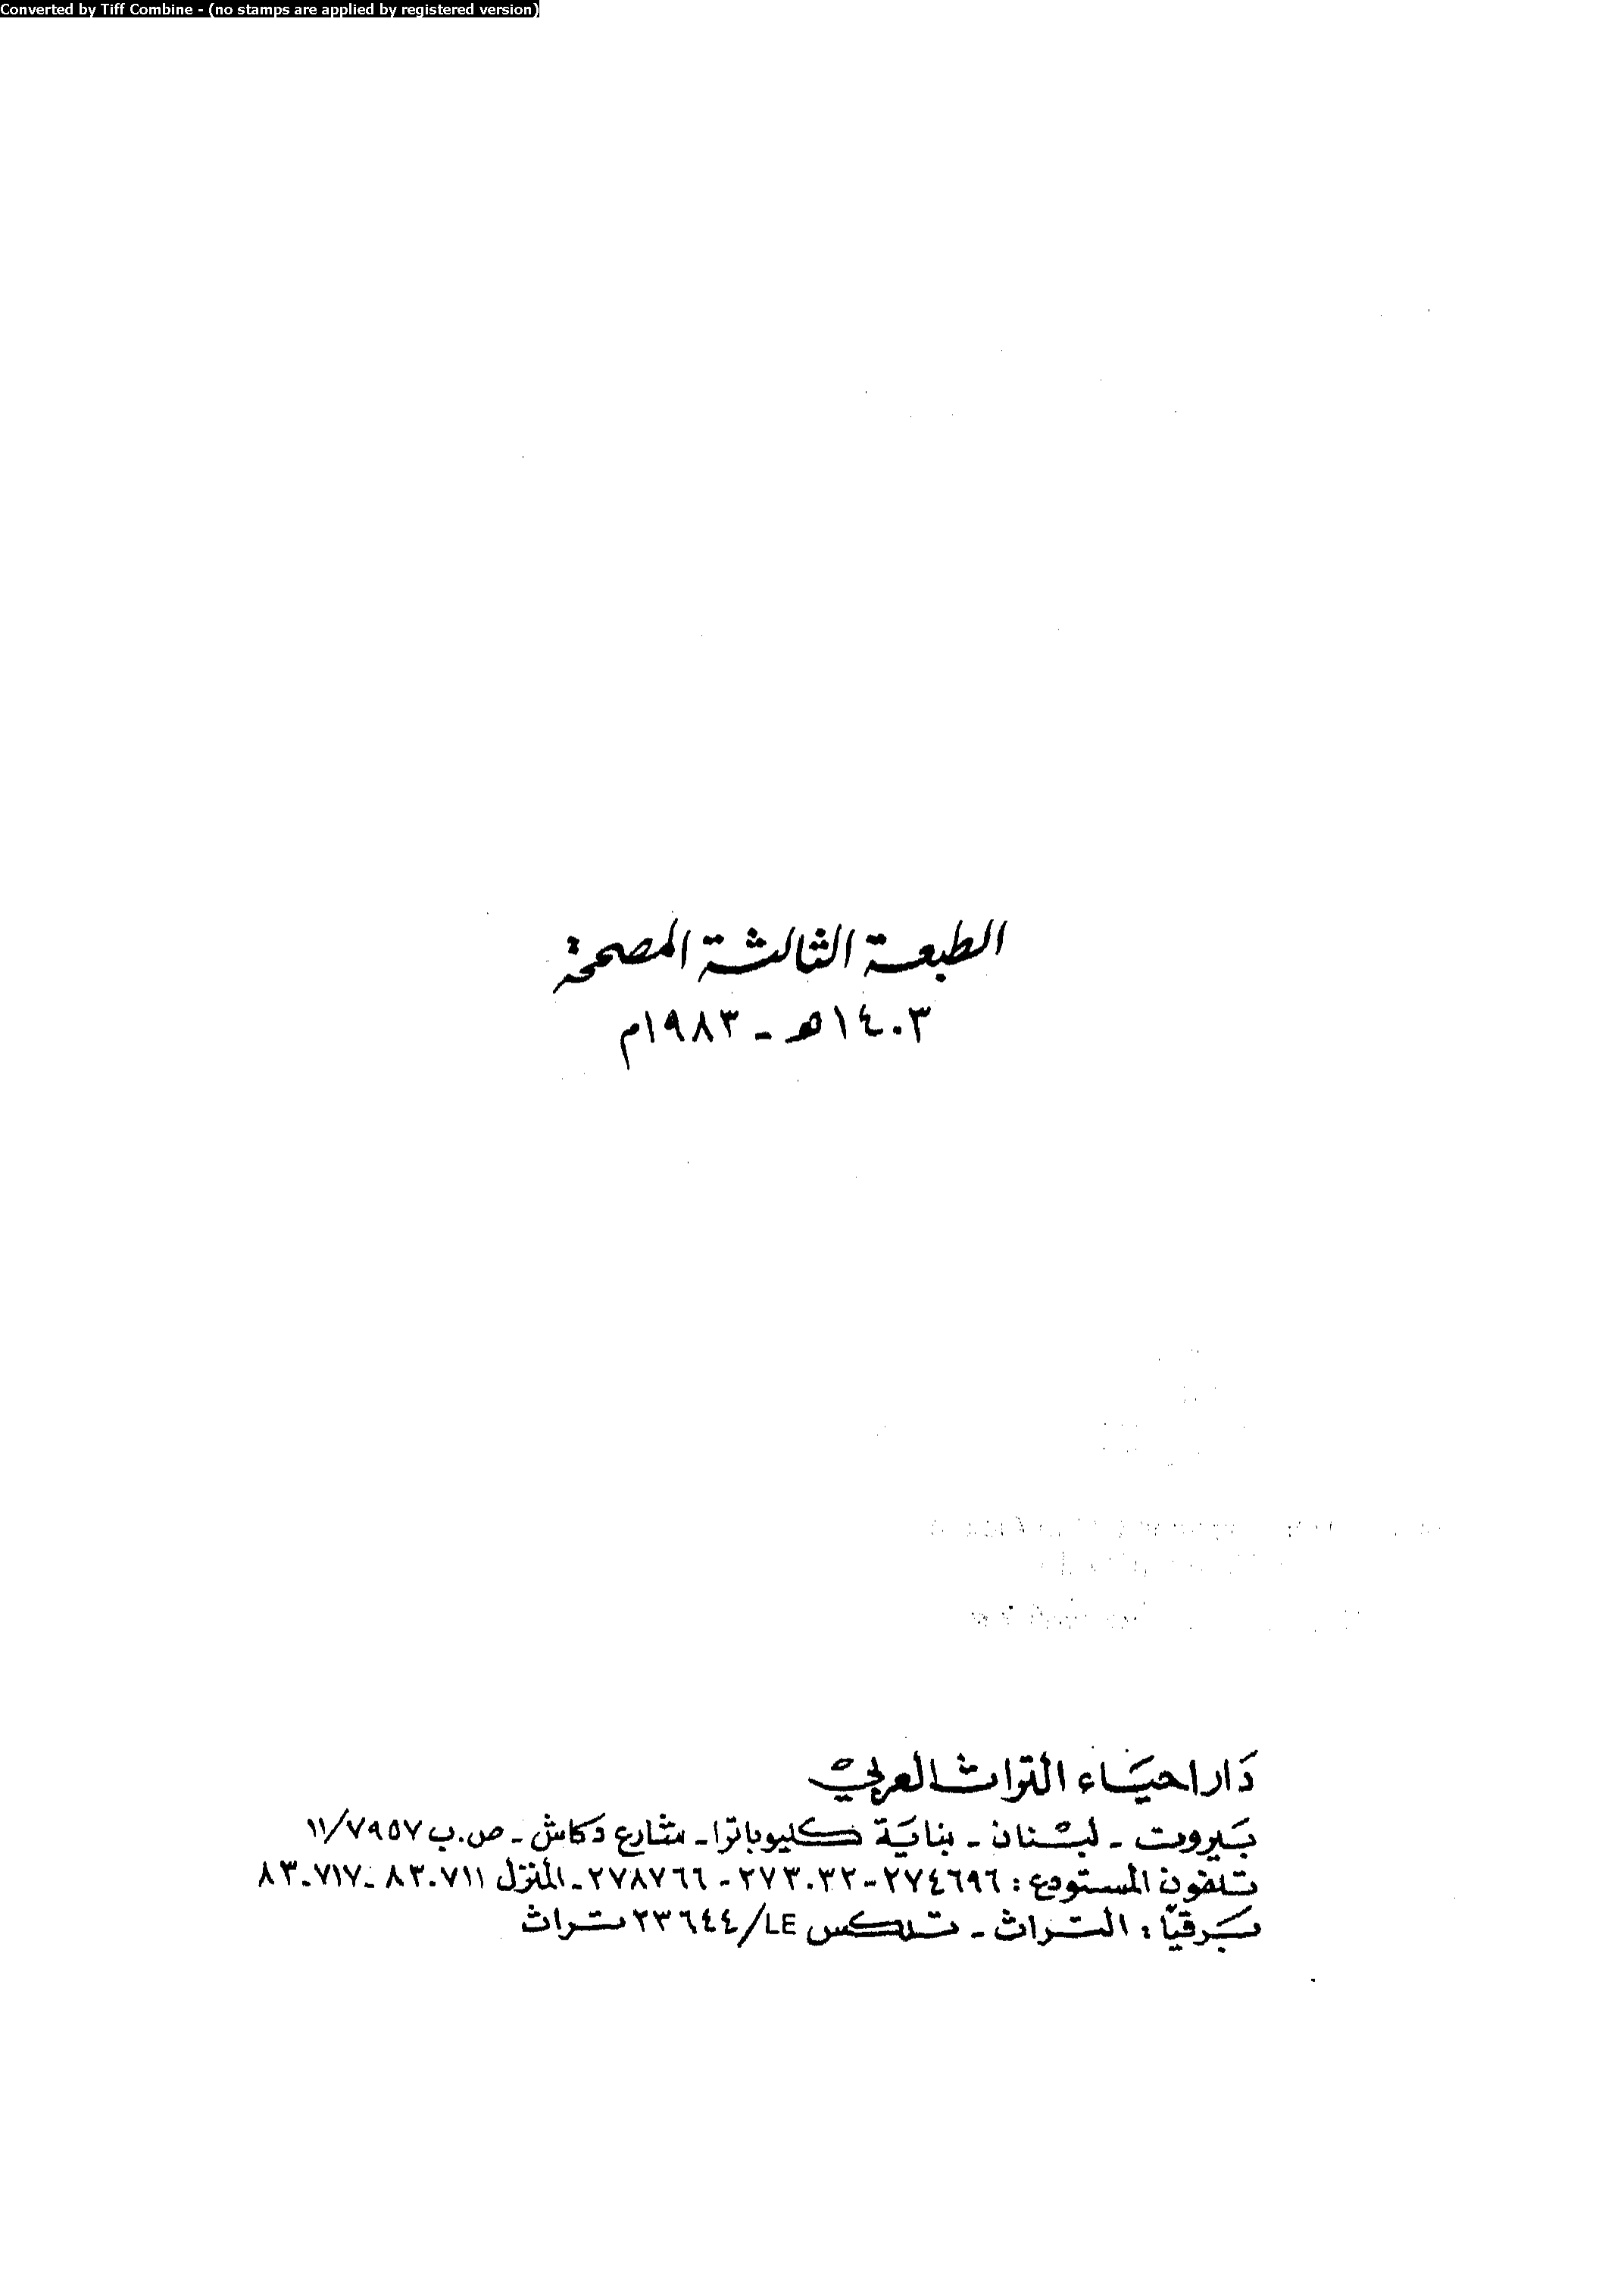 Converted by Tiff Combine - (no stamps are applied by registered version)
الطبعة الثالثة المصححة
١٤٠٣هـ - ١٩٨٣م
دَار احيَاء التراث العربي
بَيروت - لبْنان - بنايَة كليوباترا - شارع دكاش - ص.ب ١١/٧٩٥٧
تلفون المستودع : ٢٧٤٦٩٦-٢٧٣٠٣٢ - ٢٧٨٧٦٦ - المنزل ٨٣٠٧١١ - ٨٣٠٧١٧
بَرقيًا : التراث - تلكس LE/٢٣٦٤٤ تراث